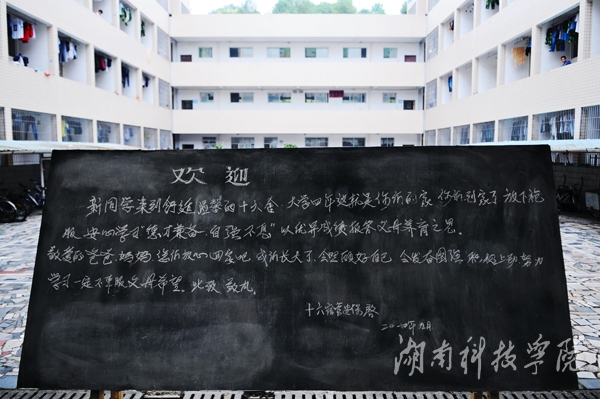 欢迎
新同学来到舒适温馨的十六舍 大学四年这就是你们的家 你们到家了 放下包
服 安心学习"德才兼备 自强不息" 以优异成绩报答父母养育之恩。
敬爱的爸爸、妈妈 请你放心回去吧 我们长大了 会照顾好自己 会发奋图强 积极上动 努力
学习一定不辜服父母希望。此致 敬礼。
十六宿管阿 启
二〇一四年九月
湖南科技学院